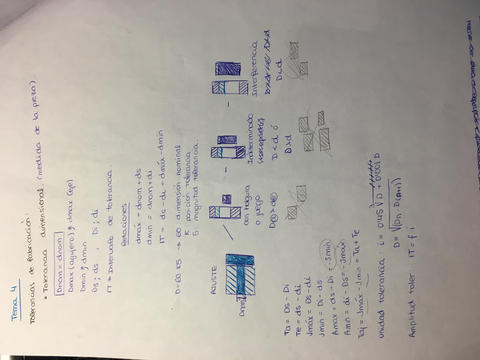 Tema 4
Tolerancias de fabricación:
• Tolerancia dimensional (medida de la pieza)
Dnom = dnom
Dmax (agujero); dmax (eje)
Dmin; dmin
Ds; ds Di; di
IT = Intervalo de tolerancia
Notaciones
dmax = dnom + ds
dmin = dnom + di
IT = ds - di = dmax - dmin
60 dimensión nominal
posición tolerancia
5 magnitud tolerancia
AJUSTE
Dnom
con holgura
o juego
Indeterminado
D < d ó
D > d
Interferencia
D < d
Ta = Ds - Di
Te = ds - di
Jmax = Ds - di
Jmin = Di - ds
Amax = ds - Di (-Jmin)
Amin = di - Ds = -Jmax
Taj = Jmax - Jmin = Ta + Te
Unidad tolerancia i = 0'45 ∛D + 0'001 D
Amplitud toler IT = f i